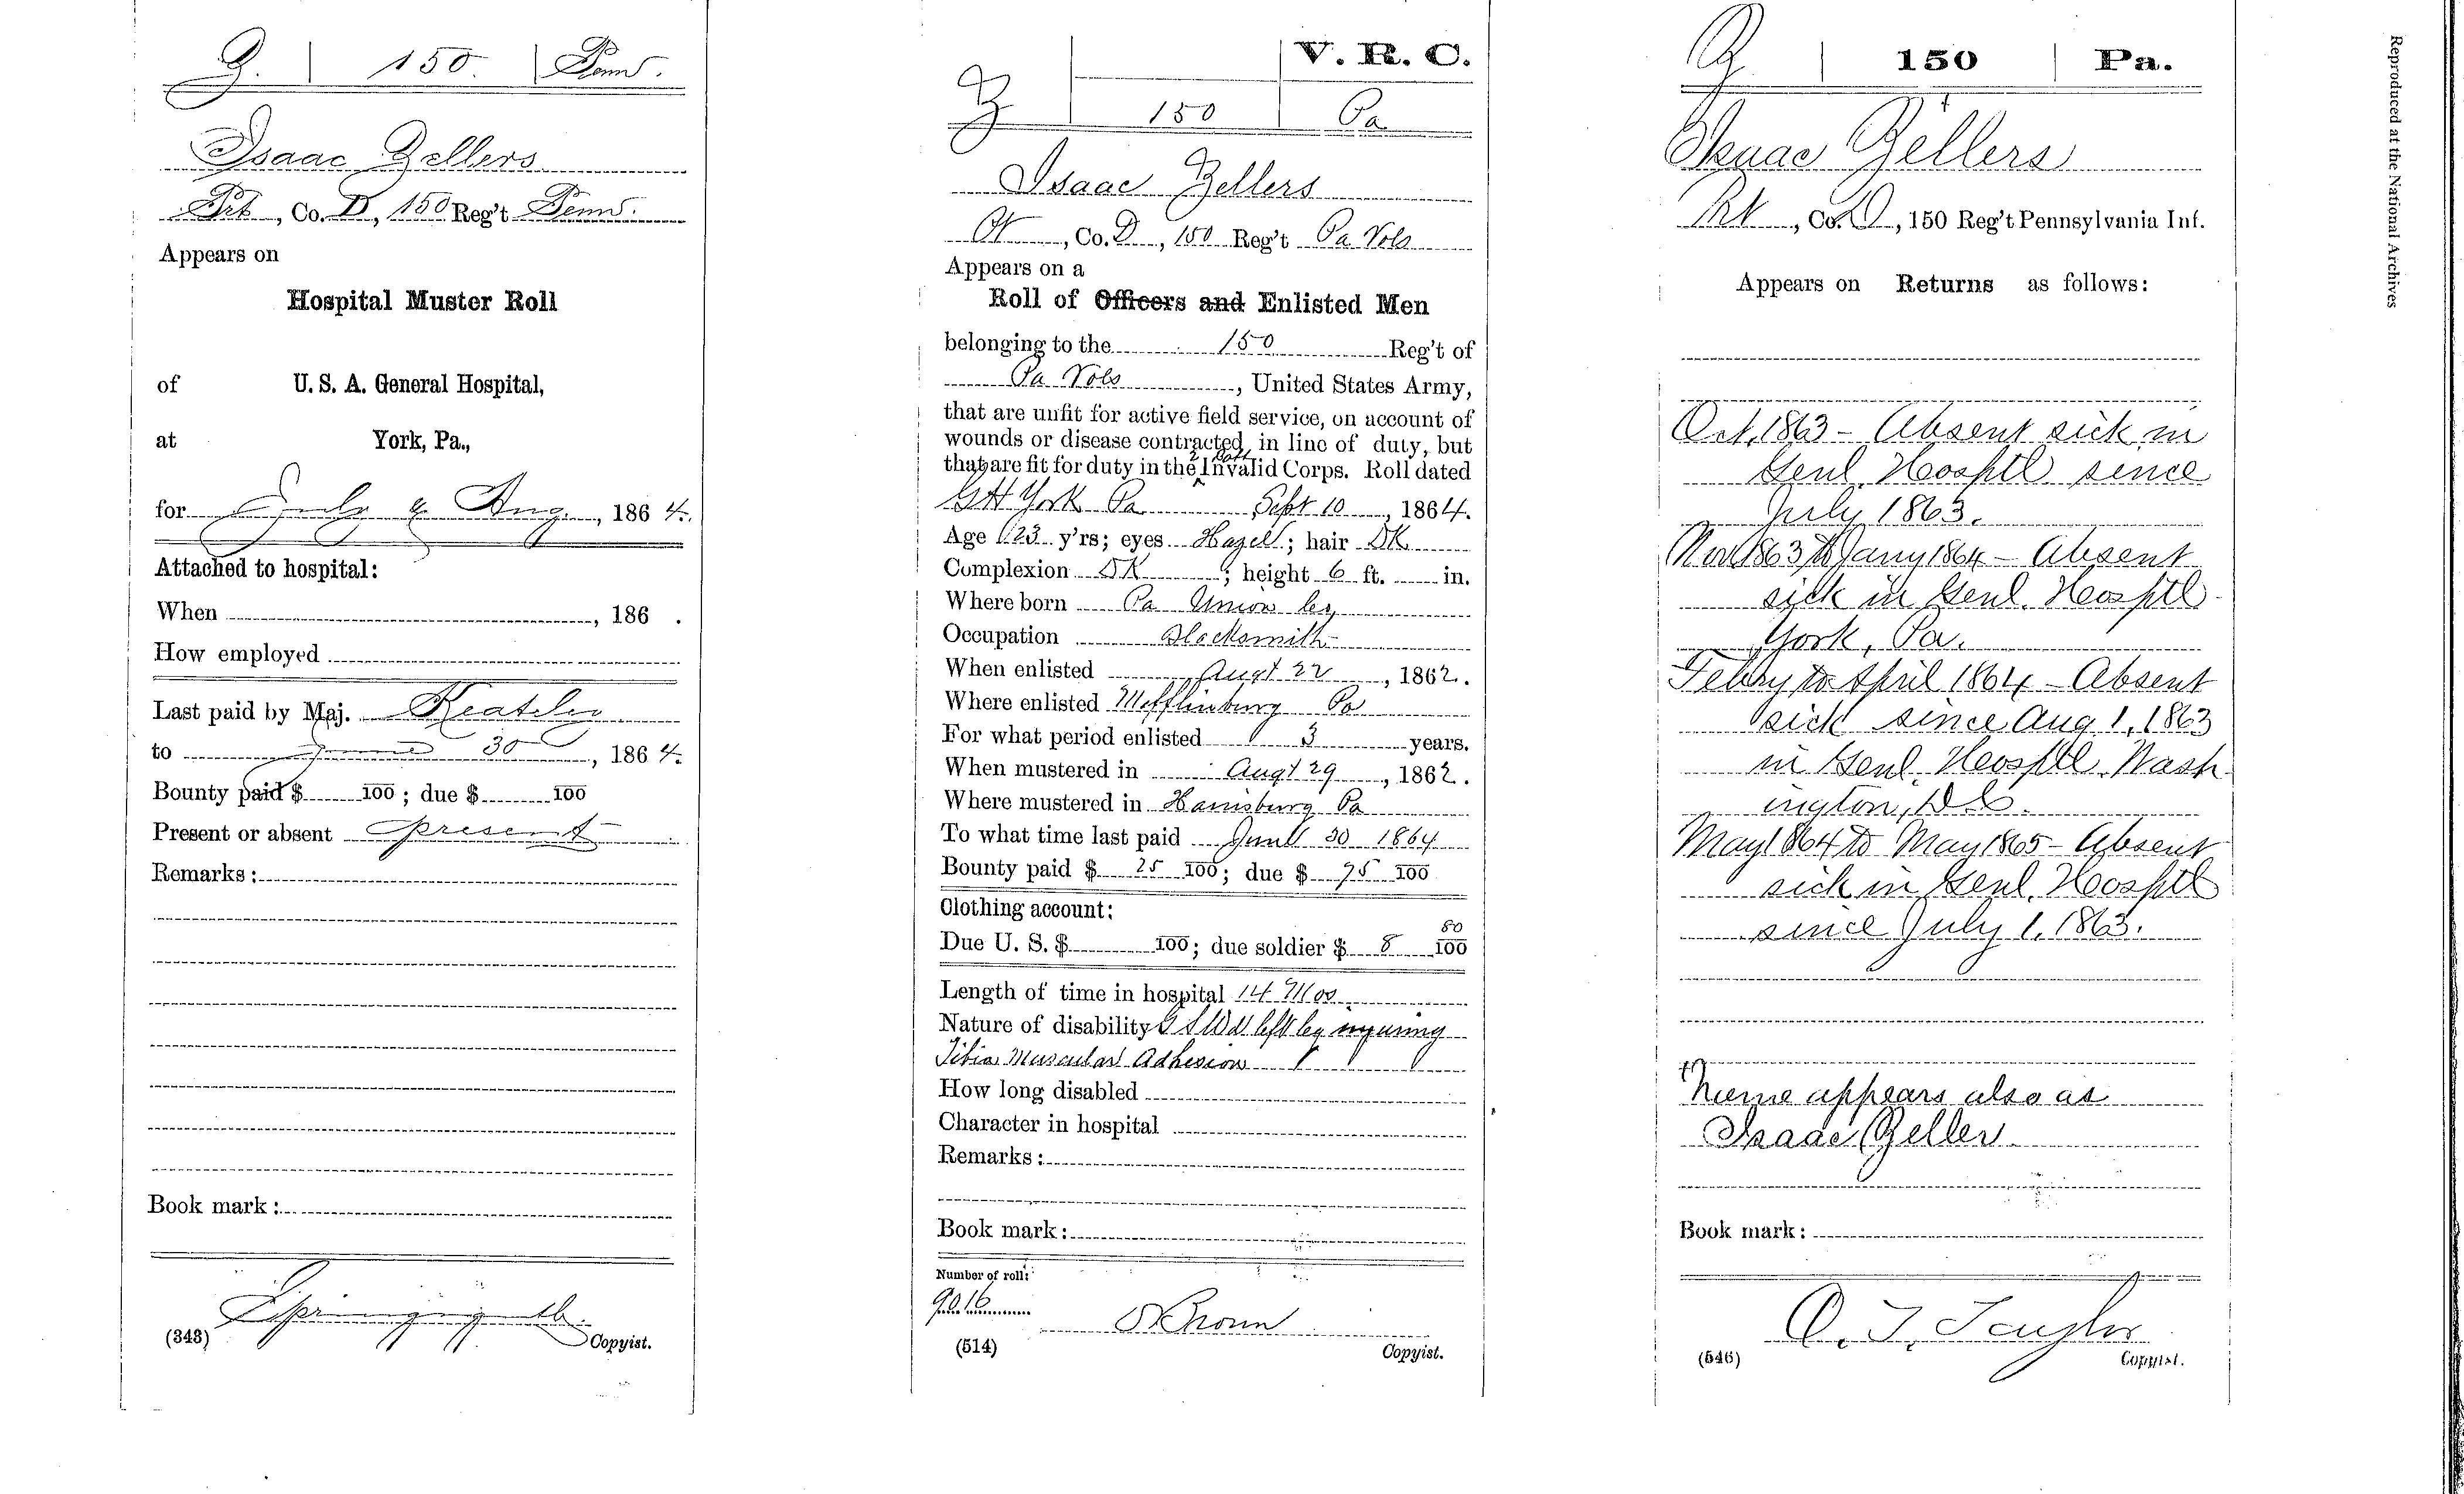 Z. | 150 | Penn.
Isaac Zellers
Prt, Co. D, 150 Reg't Penn.
Appears on
Hospital Muster Roll
of U. S. A. General Hospital,
at York, Pa.,
for July & Aug., 1864.
Attached to hospital:
When , 186 .
How employed
Last paid by Maj.
to June 30, 1864.
Bounty paid $ 100; due $ 100
Present or absent present
Remarks:
Book mark:
(343)
Copyist.
V. R. C.
Z | 150 | Pa
Isaac Zellers
Co. D, 150 Reg't Pa Vols
Appears on a
Roll of Officers and Enlisted Men
belonging to the 150 Reg't of
Pa Vols, United States Army,
that are unfit for active field service, on account of
wounds or disease contracted in line of duty, but
that are fit for duty in the 2 Batt Invalid Corps. Roll dated
GH York Pa Sept 10, 1864.
Age 23 y'rs; eyes Hazel; hair DK
Complexion DK; height 6 ft. in.
Where born Pa Union Co
Occupation Blacksmith
When enlisted Augt 22, 1862.
Where enlisted Mifflinburg Pa
For what period enlisted 3 years.
When mustered in Augt 29, 1862.
Where mustered in Harrisburg Pa
To what time last paid June 30 1864
Bounty paid $ 25 100; due $ 75 100
Clothing account:
Due U. S. $ 100; due soldier $ 8 80/100
Length of time in hospital 14 Mos
Nature of disability G S Wd left leg injuring
Tibia Muscular Adhesion
How long disabled
Character in hospital
Remarks:
Book mark:
Number of roll:
9016
(514)
Copyist.
Z | 150 | Pa.
Isaac Zellers
Pvt, Co. D, 150 Reg't Pennsylvania Inf.
Appears on Returns as follows:
Oct. 1863 - Absent sick in
Genl. Hosptl since
July 1863.
Nov 1863 to Jany 1864 - Absent
sick in Genl. Hosptl
York, Pa.
Feby to April 1864 - Absent
sick since Aug 1, 1863
in Genl. Hosptl. Wash
ington, D C.
May 1864 to May 1865 - Absent
sick in Genl. Hosptl
since July 1, 1863.
Name appears also as
Isaac Zeller
Book mark:
(546)
Copyist.
Reproduced at the National Archives